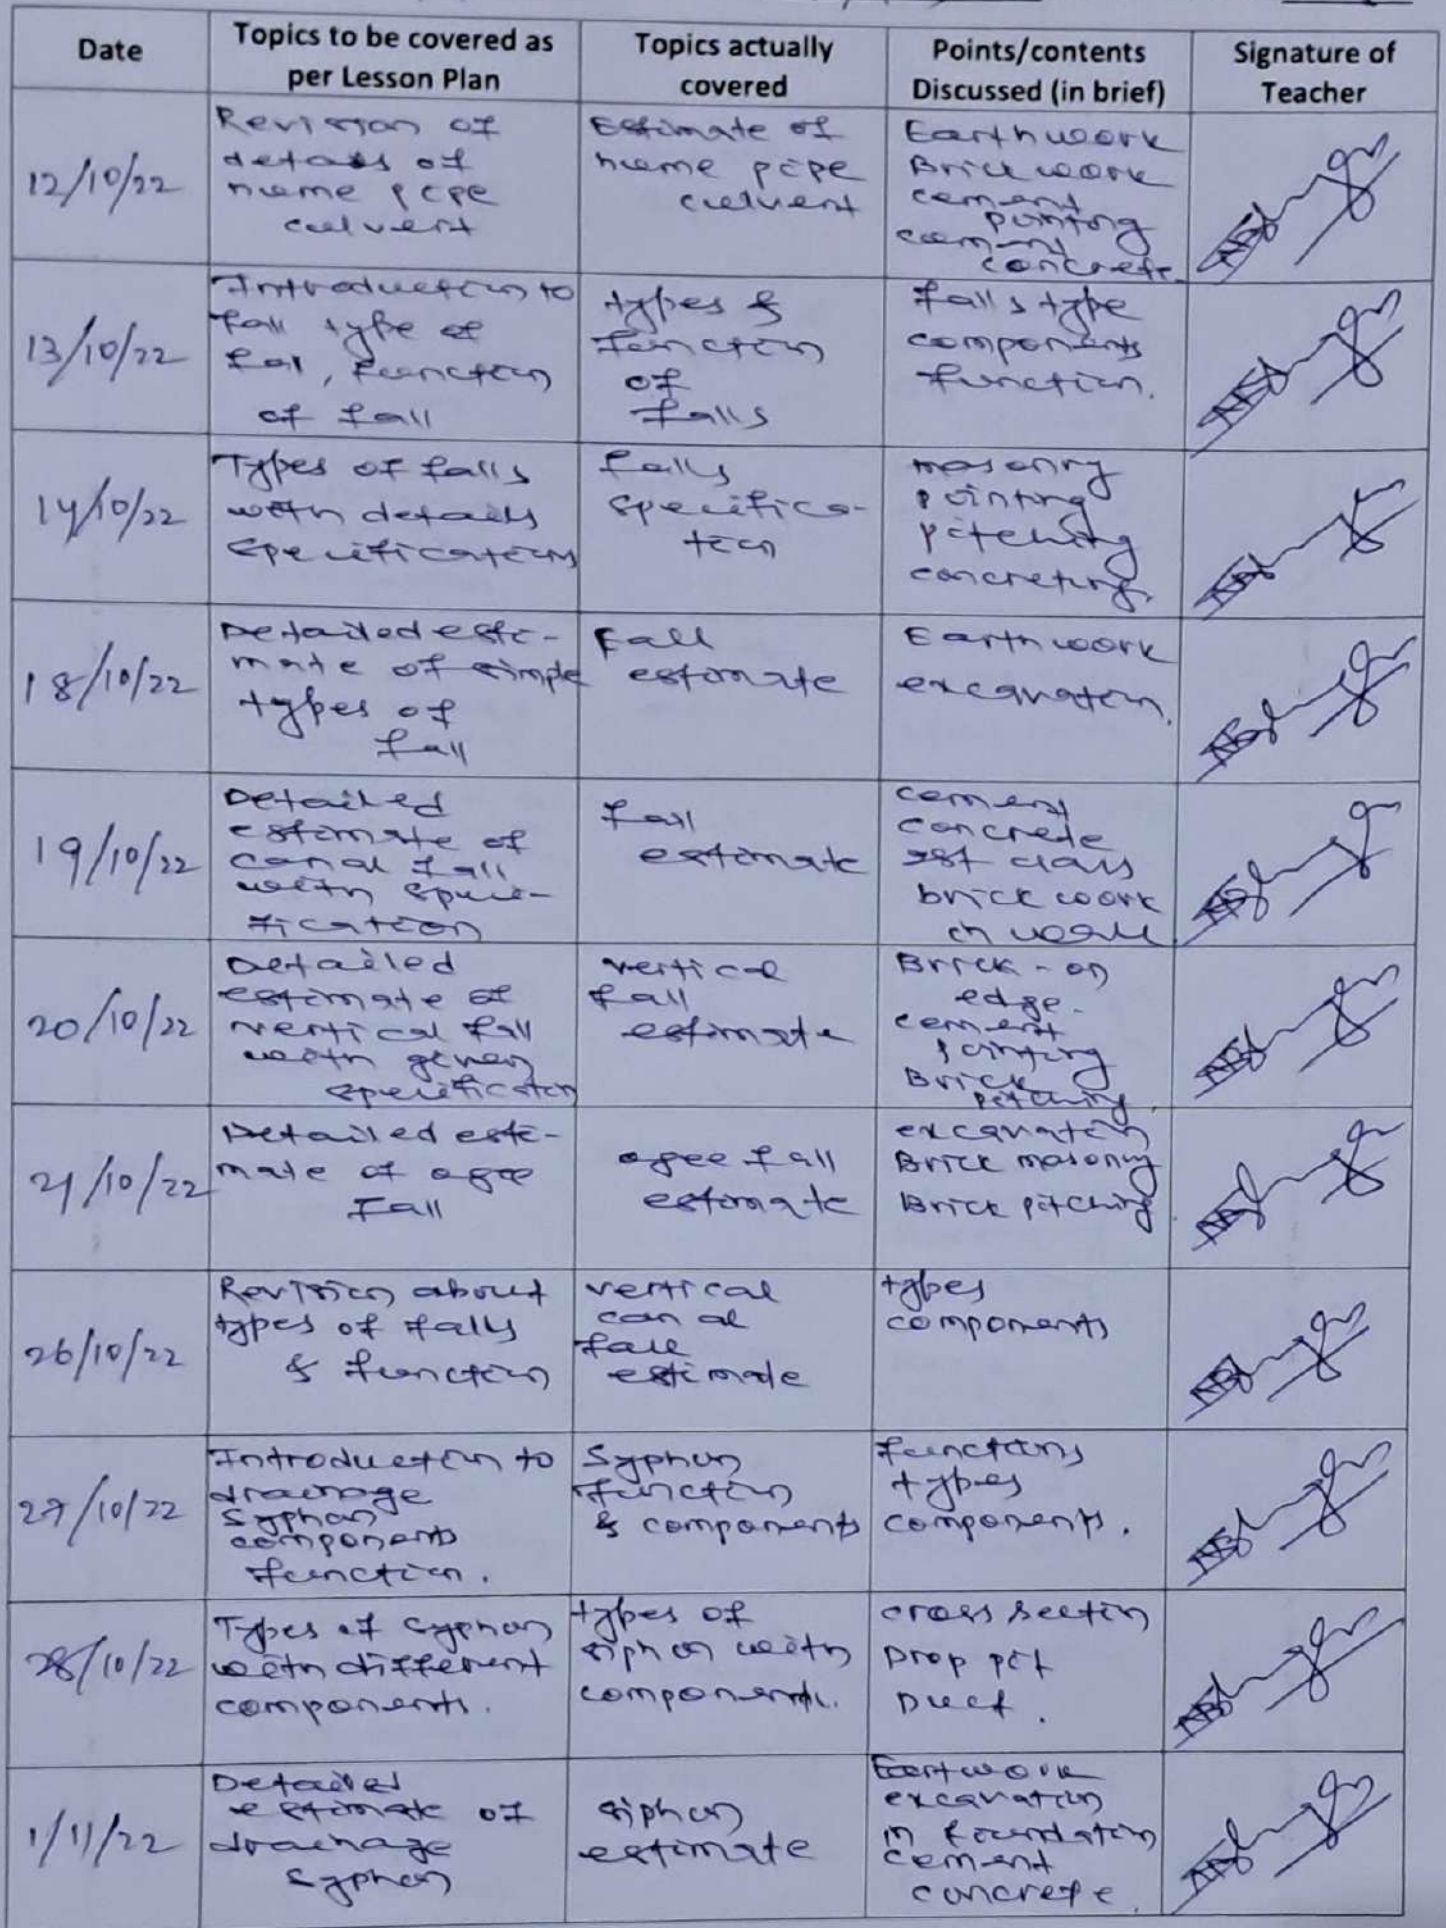 Date
Topics to be covered as
per Lesson Plan
Topics actually
covered
Points/contents
Discussed (in brief)
Signature of
Teacher
12/10/22
Revision of
details of
hume pipe
culvert
Estimate of
hume pipe
culvert
Earthwork
Brickwork
cement
pointing
cement
concrete
13/10/22
Introduction to
fall type of
fal, function
of fall
types &
function
of
falls
falls type
components
function.
14/10/22
Types of falls
with details
specifications
falls
specifica-
tion
masonry
pointing
pitching
concreting.
18/10/22
Detailed esti-
mate of simple
types of
fall
Fall
estimate
Earthwork
excavation.
19/10/22
Detailed
estimate of
canal fall
with speci-
fication
fall
estimate
cement
concrete
1st class
brick work
in wall
20/10/22
Detailed
estimate of
vertical fall
with given
specification
vertical
fall
estimate
Brick-on
edge.
cement
pointing
Brick
pitching
21/10/22
Detailed esti-
mate of ogee
Fall
ogee fall
estimate
excavation
Brick masonry
Brick pitching
26/10/22
Revision about
types of falls
& function
vertical
canal
fall
estimate
types
components
27/10/22
Introduction to
drainage
syphon
components
function.
Syphon
function
& components
functions
types
components.
28/10/22
Types of syphon
with different
components.
types of
siphon with
components.
cross section
Drop pit
Duct.
1/11/22
Detailed
estimate of
drainage
syphon
siphon
estimate
Eartwork
excavation
in foundation
cement
concrete.